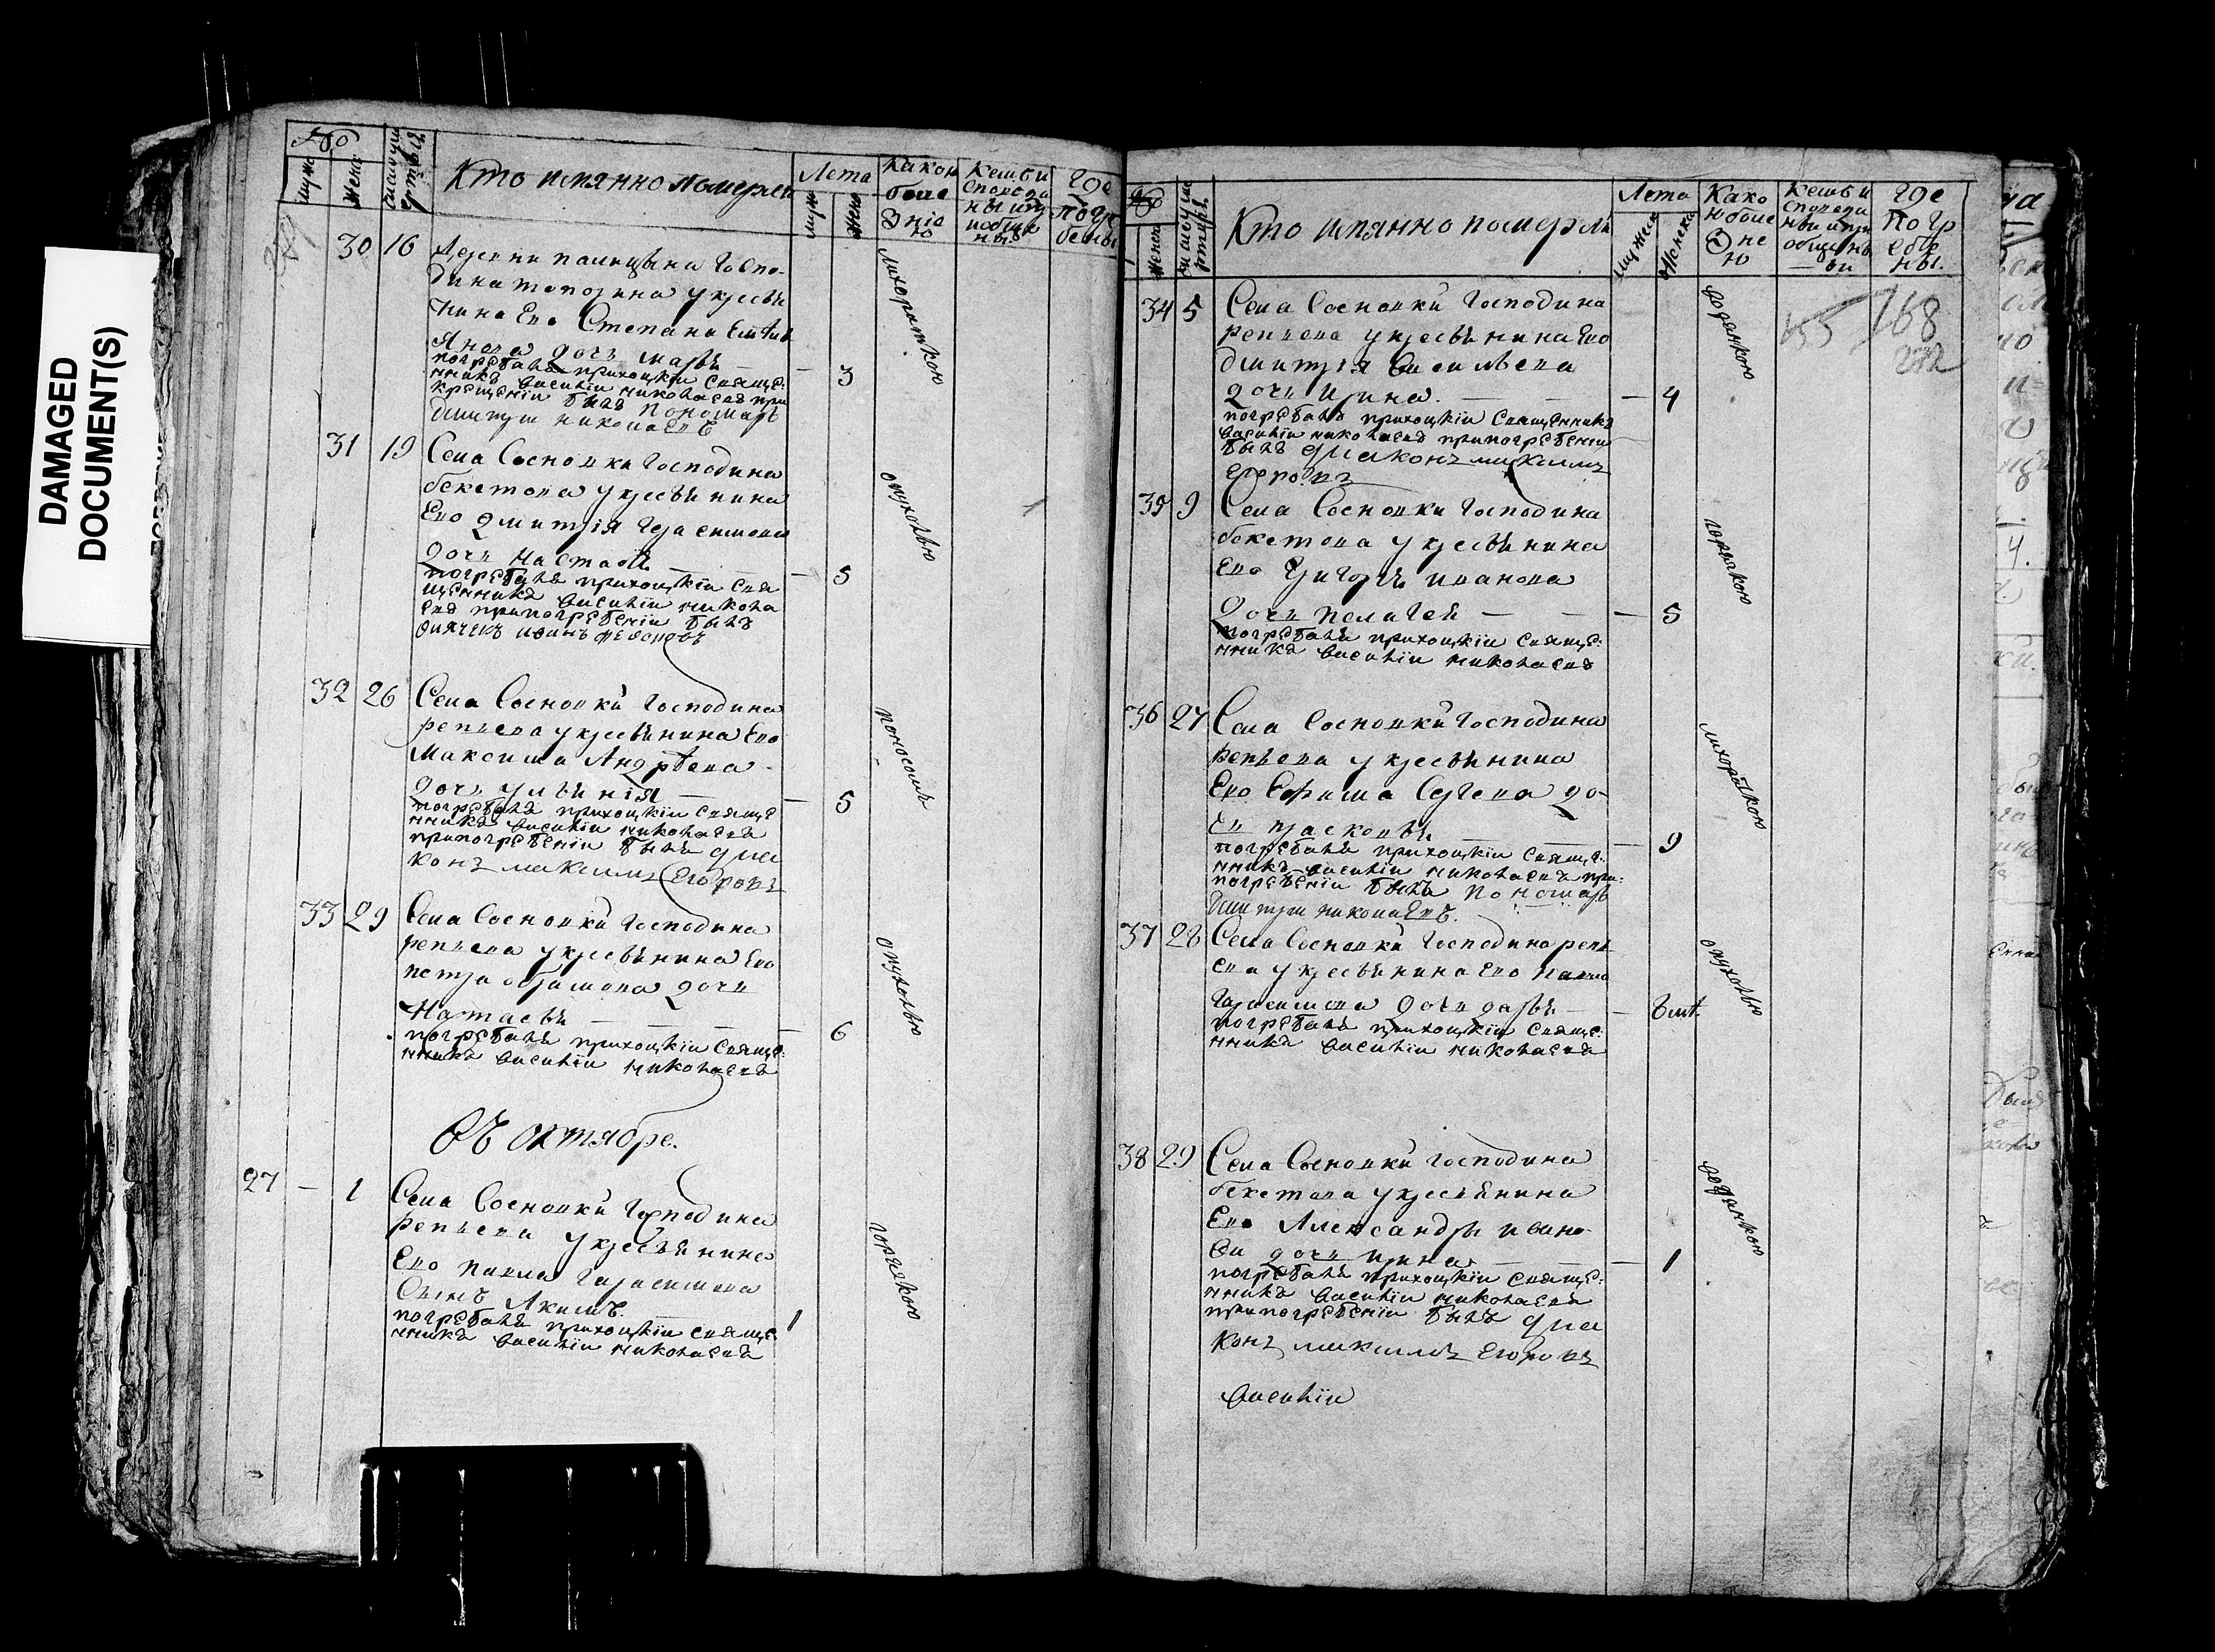 DAMAGED
DOCUMENT(S)
№
мужс
жен
Кто имянно померли
Лета
Какою
боле
знію
Кемъ и
споведа
ны и пр
иобще
ны
где
погр
бены
30 16 Деревни палицына Госпо-
дина топорнина у крестья
нина Ево Степана
дочь Марья
3
погребалъ приходцкїи Священ
никъ Василїи николаевъ при
крещенїи былъ Пономарь
Дмитри николаевъ
лихораткою
31 19 Села Сосновки Господина
бекетова у крестьянина
Ево дмитрїя Герасимова
дочь Настасья
5
погребалъ приходцкїи Свя
щенникъ Василїи никола
евъ при погребенїи былъ
дьячекъ иванъ федоровъ
опухолью
32 26 Села Сосновки Господина
репьева у крестьянина Ево
Максима Андреева
дочь ульянїя
5
погребалъ приходцкїи Свяще
нникъ Василїи николаевъ
при погребенїи былъ диа
конъ максимъ Егоровъ
поносомъ
33 29 Села Сосновки Господина
репьева у крестьянина Ево
петра абрамова дочь
Натасья
6
погребалъ приходцкїи Свяще
нникъ Василїи николаевъ
опухолью
Въ октябре.
27 — 1 Села Сосновки Господина
репьева у крестьянина
Ево павла Гарасимова
Сынъ Якимъ
1
погребалъ приходцкїи свяще
нникъ Василїи николаевъ
горячкою
№
женск
Кто имянно померли
Лета
мужеск
женска
Како
ю боле
зне
ю
Кемъ и
споведа
ны и при
общен
ы
где
погр
ебе
ны.
155 168
272
34 5 Села Сосновки Господина
репьева у крестьянина Ево
дмитрїя Васильева
дочь Ирина
4
погребалъ приходцкїи Священникъ
Василїи николаевъ при погребенїи
былъ диаконъ максимъ
Егоровъ
35 9 Села Сосновки Господина
бекетова у крестьянина
Ево Григорья иванова
дочь пелагея
5
погребалъ приходцкїи Свяще
нникъ Василїи николаевъ
горячкою
36 27 Села Сосновки Господина
репьева у крестьянина
Ево Ефима Сергеева до-
чь прасковья
9
погребалъ приходцкїи Свяще
нникъ Василїи николаевъ при
погребенїи былъ пономарь
Дмитри николаевъ.
лихораткою
37 28 Села Сосновки Господина репь
ева у крестьянина Ево павла
Гарасимова дочь дарья
погребалъ приходцкїи Свяще
нникъ Василїи николаевъ
опухолью
38 29 Села Сосновки Господина
бекетова у крестьянина
Ево Александры ивано
ва дочь ирина
1
погребалъ приходцкїи Свяще
нникъ Василїи николаевъ
при погребенїи былъ диа
конъ максимъ Егоровъ
Василїи